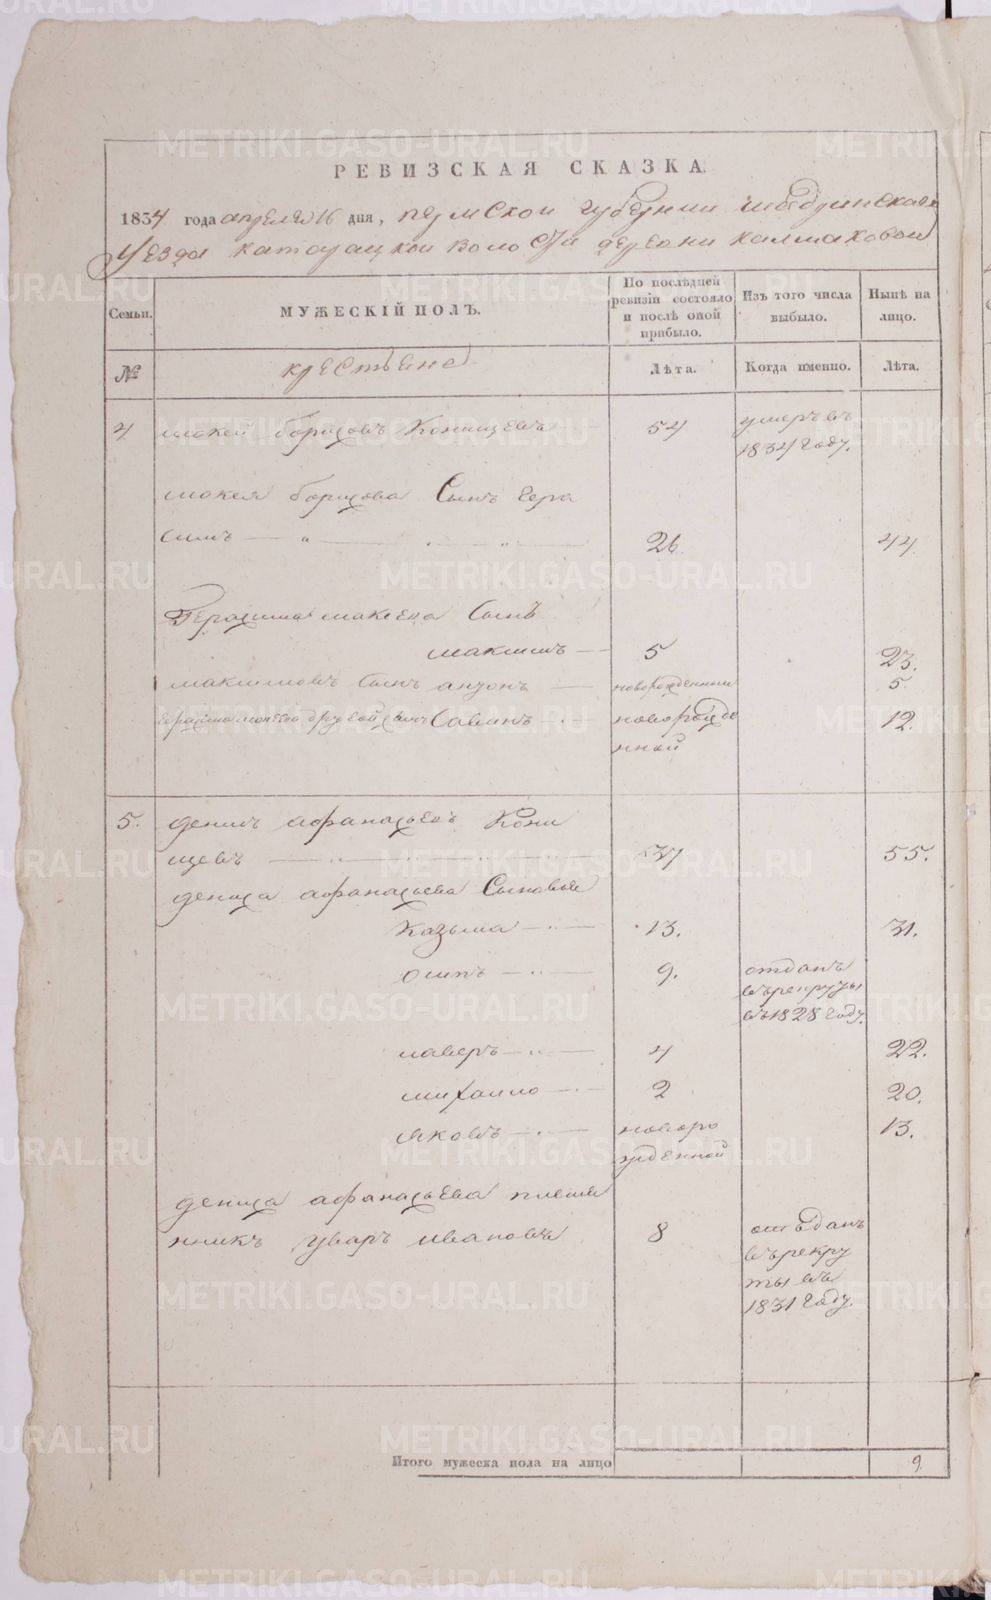 METRIKI.GASO-URAL.RU
РЕВИЗСКАЯ СКАЗКА.
1834 года апреля 16 дня, пермской губернии шадринскаго
уезда катарацкой волости деревни калмаковой
Семьи.
МУЖЕСКІЙ ПОЛЪ.
По послѣдней ревизіи состояло и послѣ оной прибыло.
Изъ того числа выбыло.
Нынѣ на лицо.
№
крестьене
Лѣта.
Когда именно.
Лѣта.
4 мокей борисовъ Конищевъ 54 умеръ въ
1834 году.
мокея борисова Сынъ Гера
симъ 26. 44.
Герасима макеева Сынъ
максимъ 5 23.
максимовъ Сынъ новорожденный 5.
другой сынъ новорожде 12.
нной
5. денисъ афанасьевъ Кони
щевъ 37 55.
дениса афанасьева Сыновья
Казьма 13. 31.
осипъ 9. отданъ
въ рекруты
въ 1828 году.
лаверъ 4 22.
михаило 2 20.
яковъ новоро 13.
жденной
дениса афанасьева племе
нникъ уваръ ивановъ 8 отъданъ
въ рекру
ты въ
1831 году.
Итого мужеска пола на лицо 9.